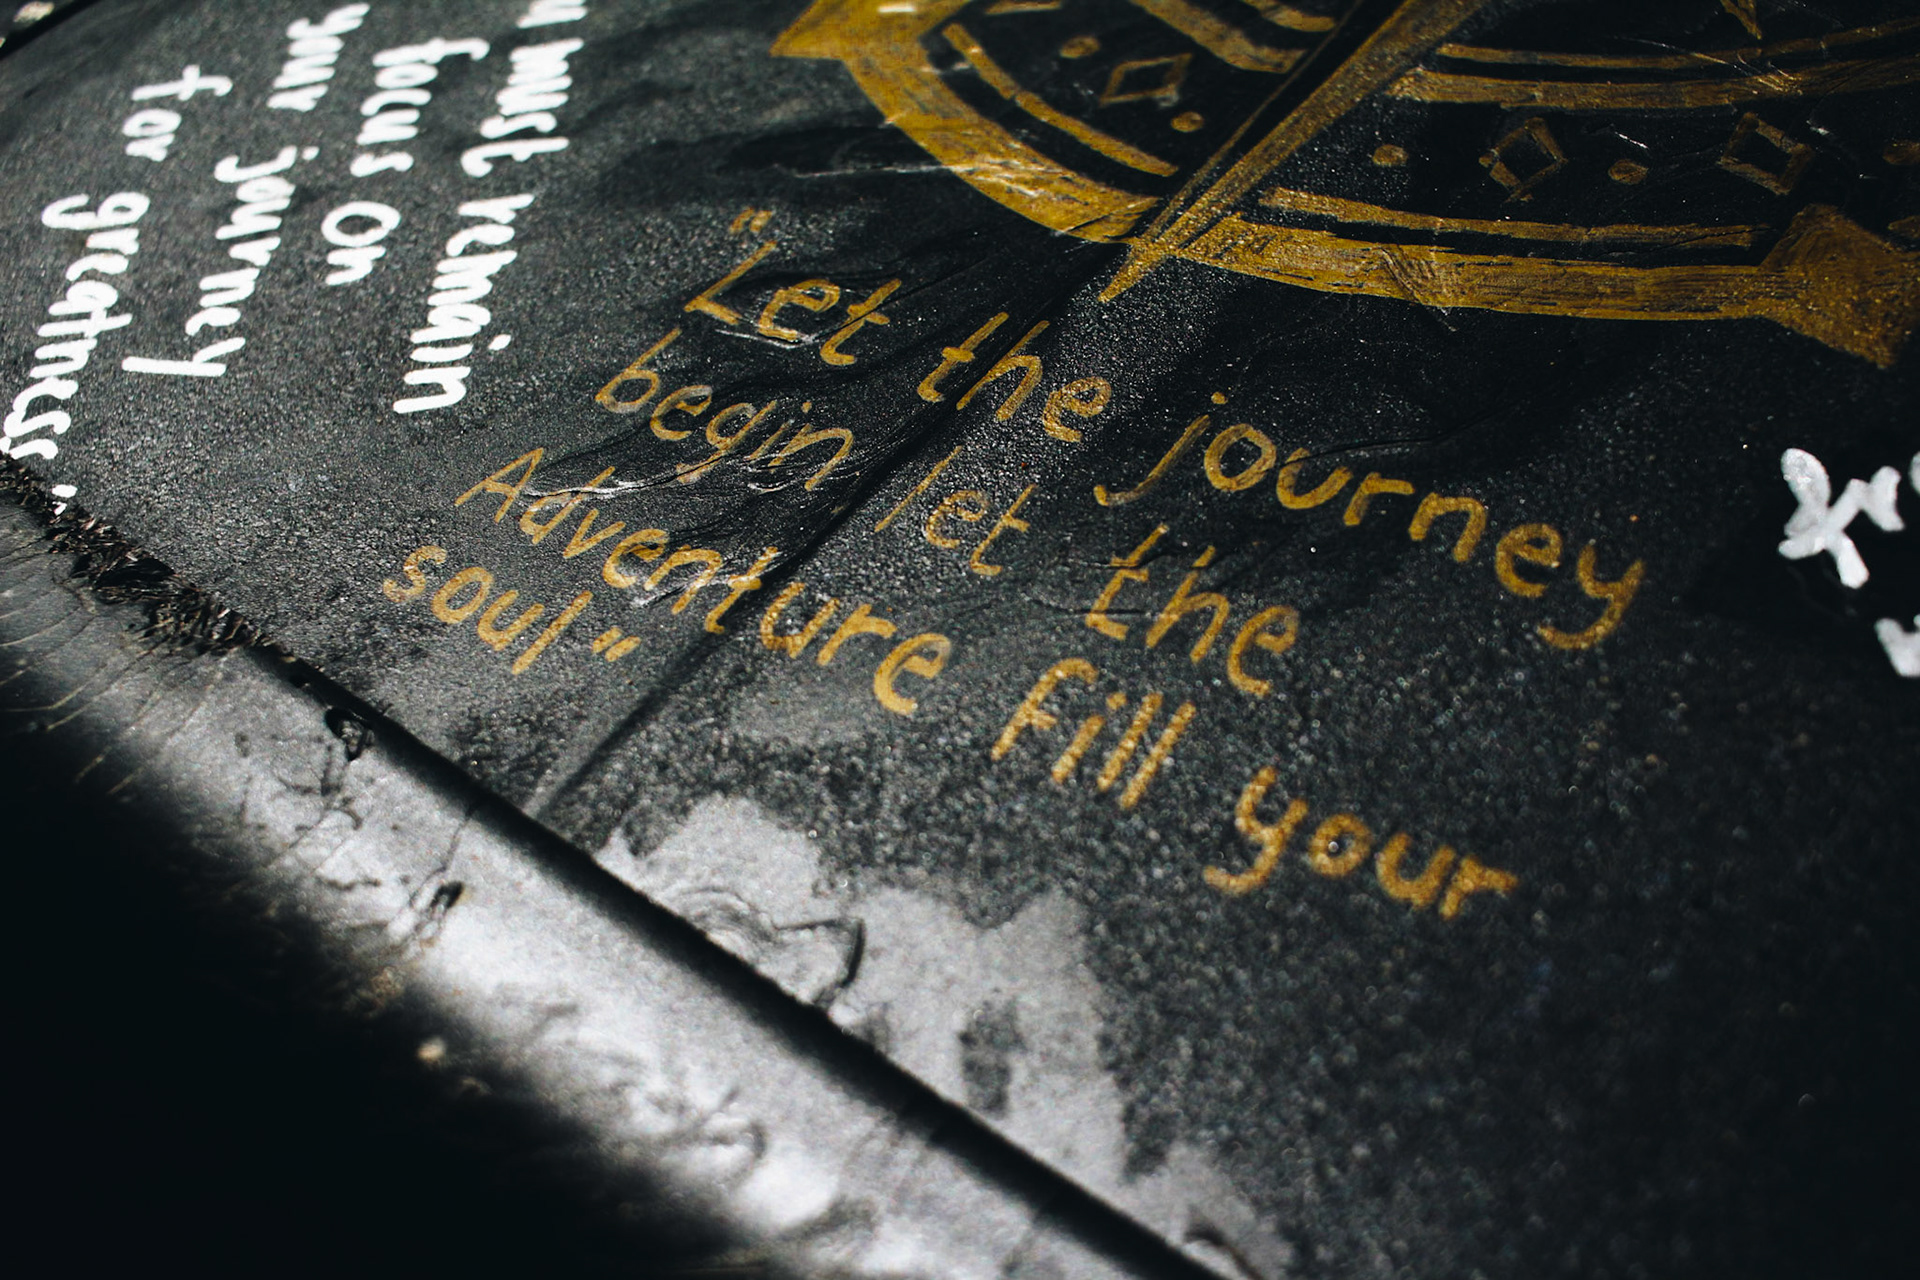 "Let the journey
begin let the
Adventure fill your
soul"
must remain
focus on
your journey
for greatness